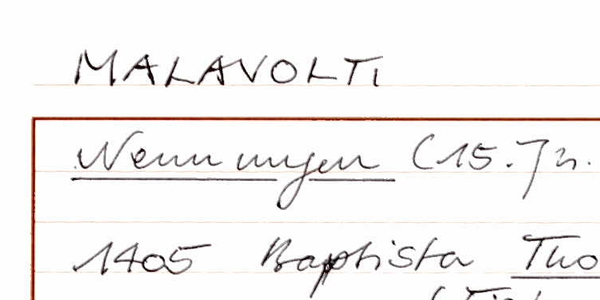 MALAVOLTI
Nennungen (15. Jh.
1405 Baptista Tho